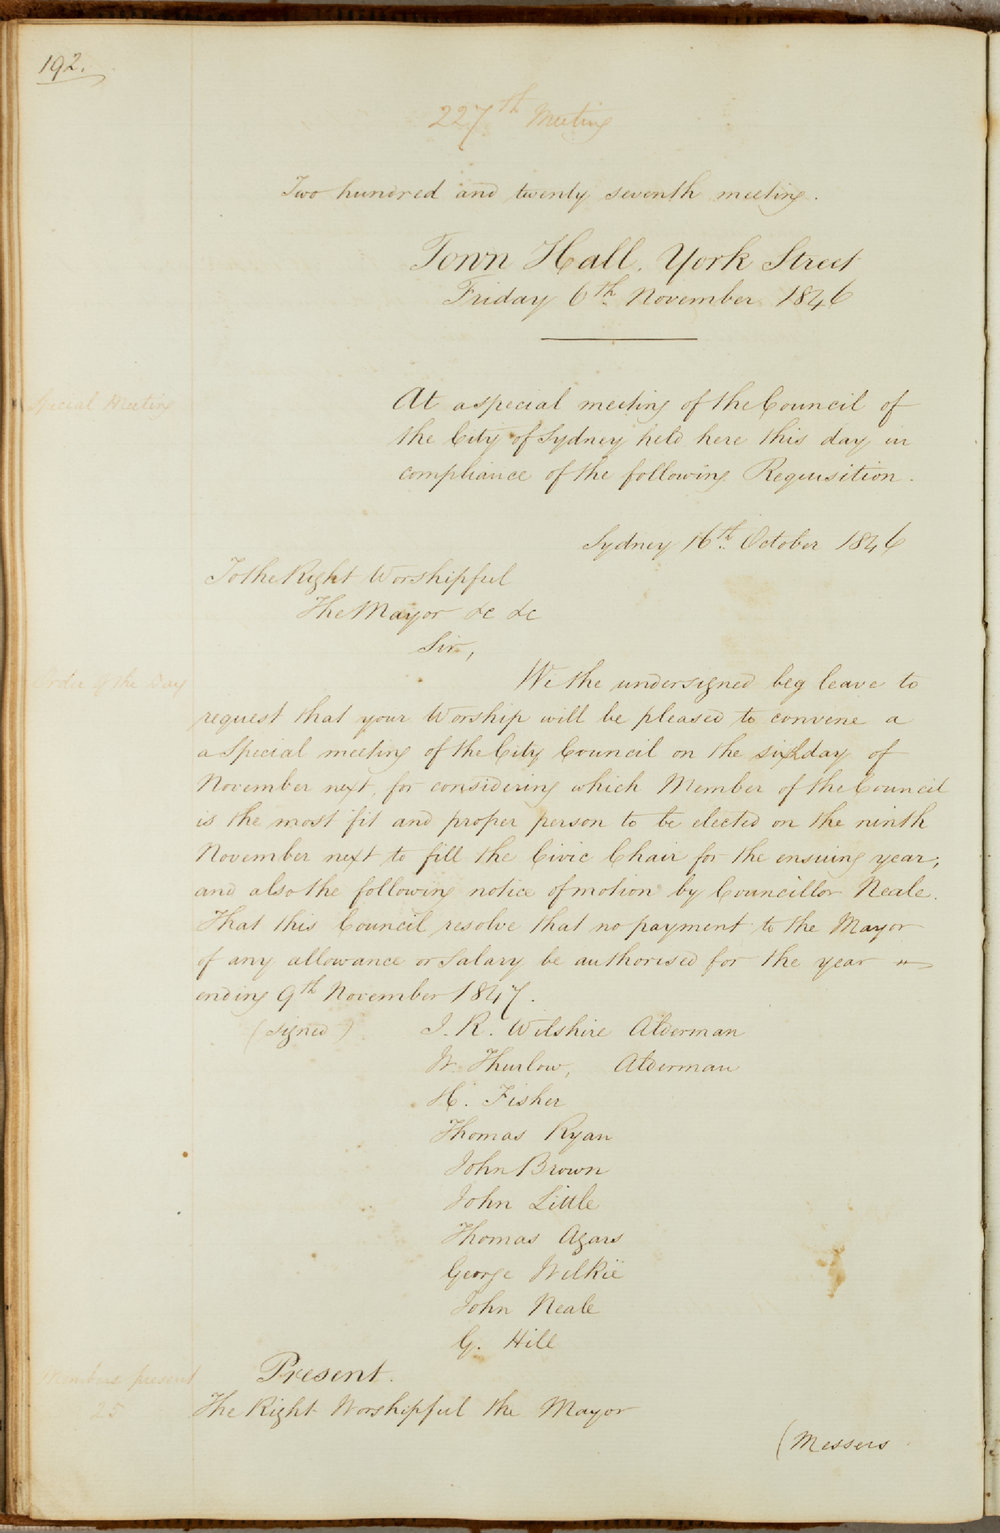 192.
227th Meeting
Two hundred and twenty seventh meeting.
Town Hall. York Street
Friday 6th November 1846
Special Meeting
At a special meeting of the Council of
the City of Sydney held here this day in
compliance of the following Requisition.
Sydney 16th October 1846
To the Right Worshipful
The Mayor &c &c
Sir,
Order of the Day
We the undersigned beg leave to
request that your Worship will be pleased to convene a
a Special meeting of the City Council on the sixth day of
November next, for considering which Member of the Council
is the most fit and proper person to be elected on the ninth
November next to fill the Civic Chair for the ensuing year;
and also the following notice of motion by Councillor Neale.
That this Council resolve that no payment to the Mayor
of any allowance or Salary be authorised for the year
ending 9th November 1847.
(Signed) J. R. Wilshire Alderman
W. Thurlow, Alderman
H. Fisher
Thomas Ryan
John Brown
John Little
Thomas Agars
George Wilkie
John Neale
G. Hill
Members present
25
Present.
The Right Worshipful the Mayor
(Messers